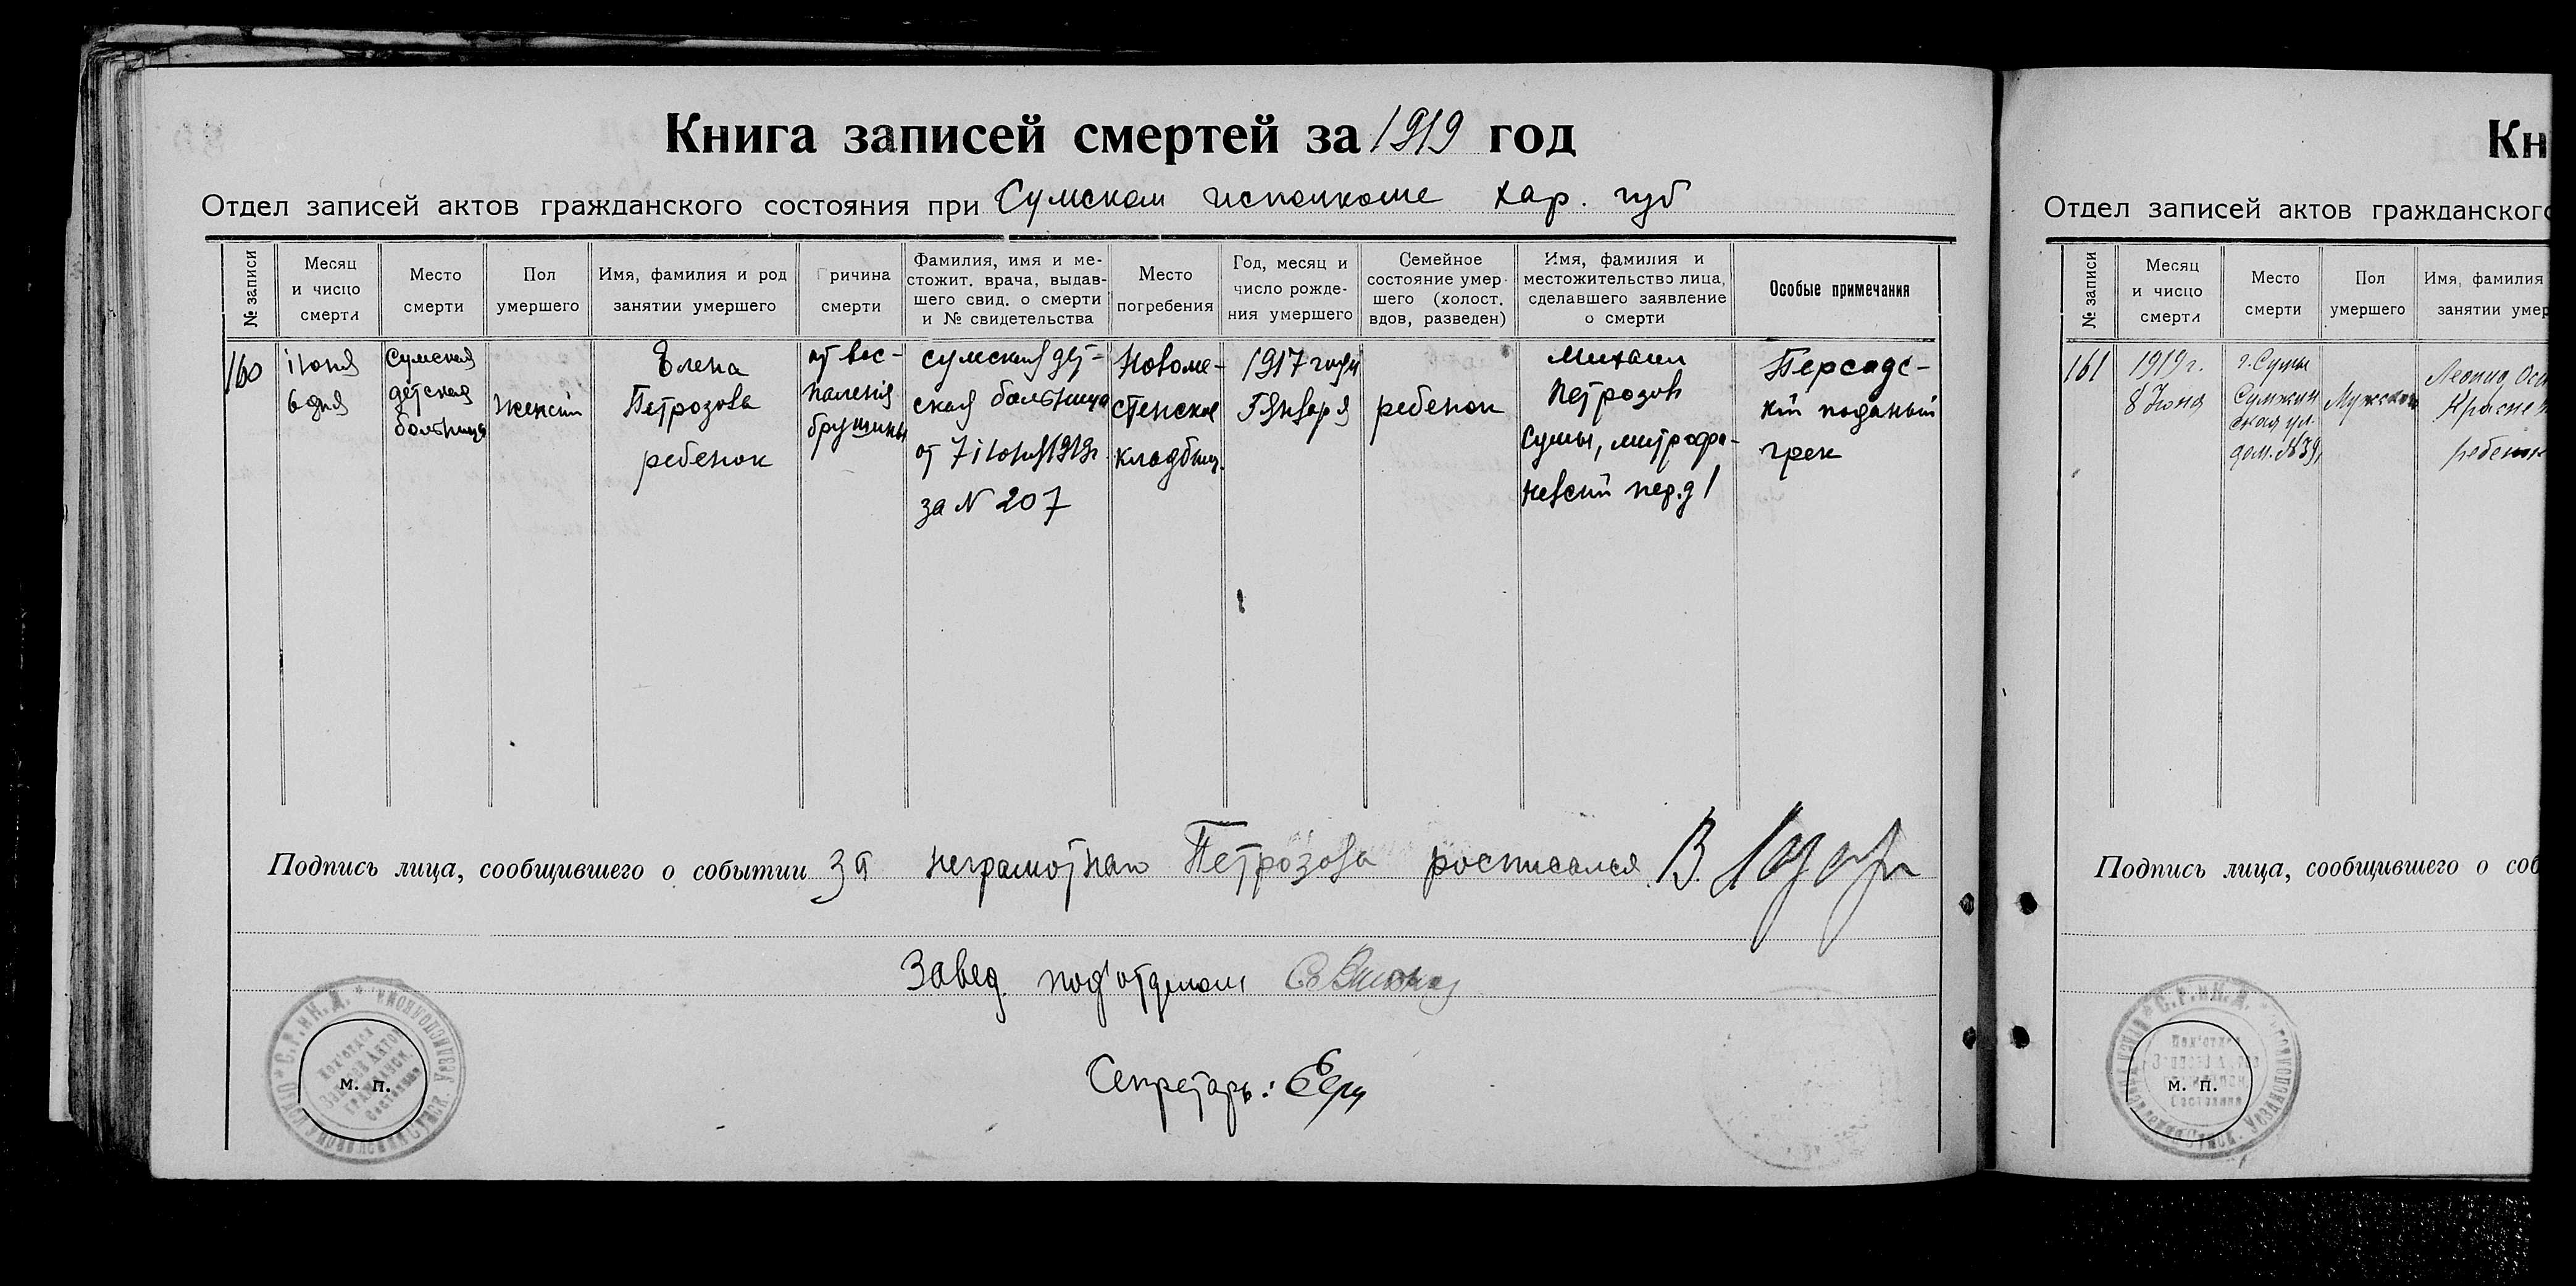 Книга записей смертей за 1919 год
Отдел записей актов гражданского состояния при Сумском исполкоме Хар. губ
№ записи
Месяц
и число
смерти
Место
смерти
Пол
умершего
Имя, фамилия и род
занятии умершего
Причина
смерти
Фамилия, имя и ме-
стожит. врача, выдав-
шего свид. о смерти
и № свидетельства
Место
погребения
Год, месяц и
число рожде-
ния умершего
Семейное
состояние умер-
шего (холост.
вдов, разведен)
Имя, фамилия и
местожительство лица,
сделавшего заявление
о смерти
Особые примечания
160
іюня
6 дня
Сумская
детская
больница
Женскій
Елена
Петрозова
ребенок
от вос-
паленія
брушины
Сумская дет-
ская больница
от 7 іюня 1919г.
за N 207
Новоме-
стенское
кладбищ.
1917 года
Января
ребенок
Михаил
Петрозов
Сумы, митрофа-
невскій пер. д 1
Персидс-
кій поданый
грек
Подпись лица, сообщившего о событии За неграмотнаю Петрозова росписался В.
Завед. под'отделом
Секретарь:
М. П.
Кн
Отдел записей актов гражданского
№ записи
Месяц
и число
смерти
Место
смерти
Пол
умершего
Имя, фамилия
занятии умер
161
1919 г.
8 Июня
г. Сумы
Сумская ул.
дом. №39,
Мужской
Леонид
ребенок
Подпись лица, сообщившего о соб
М. П.